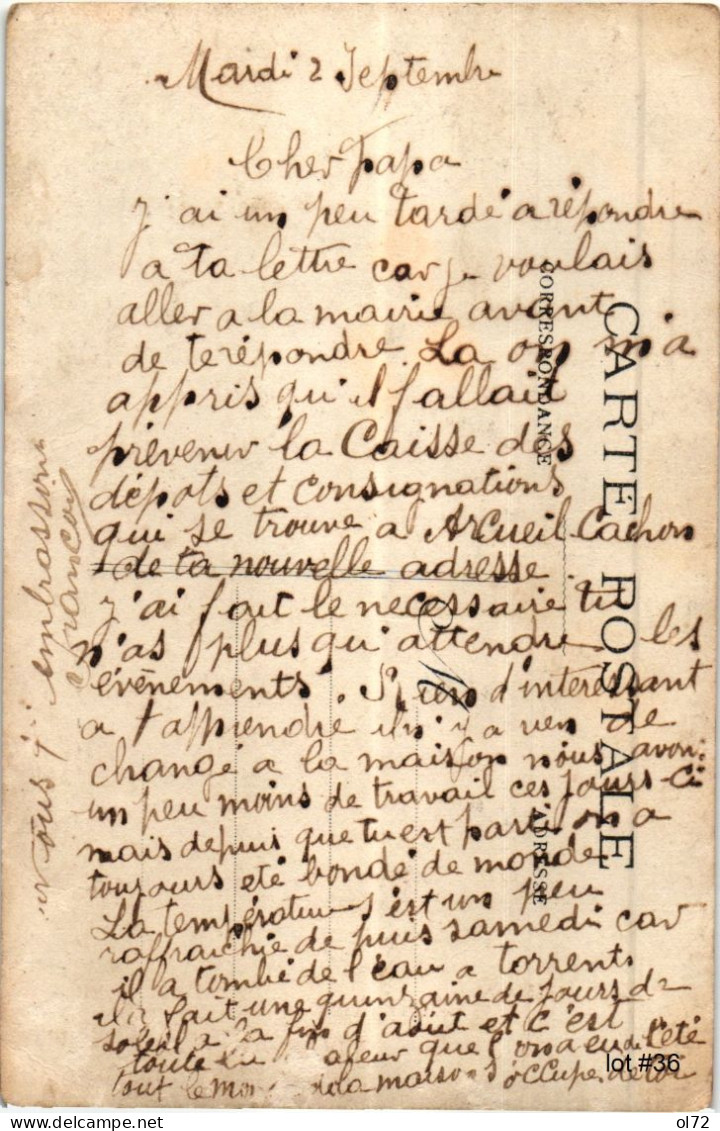 Mardi 2 Septembre
Cher Papa
J'ai un peu tardé a répondre
a ta lettre car je voulais
aller a la mairie avant
de te répondre. La on m'a
appris qu'il fallait
prévenir la Caisse des
dépots et consignations
qui se trouve a Arcueil Cachan
de ta nouvelle adresse
J'ai fait le necessaire tu
n'as plus qu'attendre les
évènements. Rien d'interessant
a t'apprendre il n'y a rien de
changé a la maison nous avons
un peu moins de travail ces jours-ci
mais depuis que tu est parti on a
toujours eté bondé de monde
La température s'est un peu
raffraichie de puis samedi car
il a tombé de l'eau a torrents
Il a fait une quinzaine de jours de
soleil a la fin d'aout et c'est
toute la que l'on a eu de l'été
tout le mon la maison s'occupe de toi
vous embrassons
François
CARTE POSTALE
CORRESPONDANCE
ADRESSE
M
lot #36
ol72